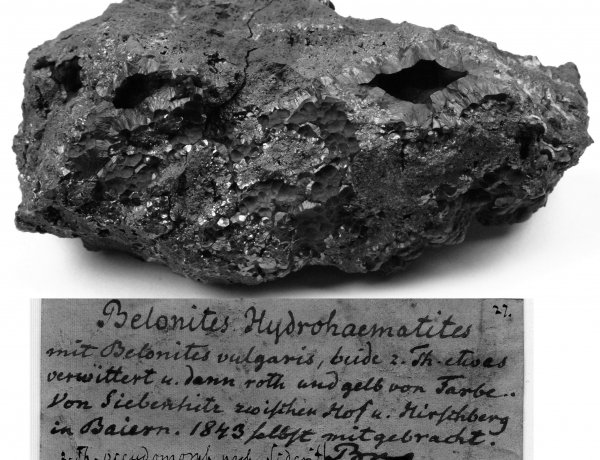 27.
Belonites Hydrohaematites
mit Belonites vulgaris, beide z. Th. etwas
verwittert u. dann roth und gelb von Farbe.
Von Siebenhitz zwischen Hof u. Hirschberg
in Baiern. 1843 selbst mitgebracht.
z. Th. pseudomorph nach Siderit